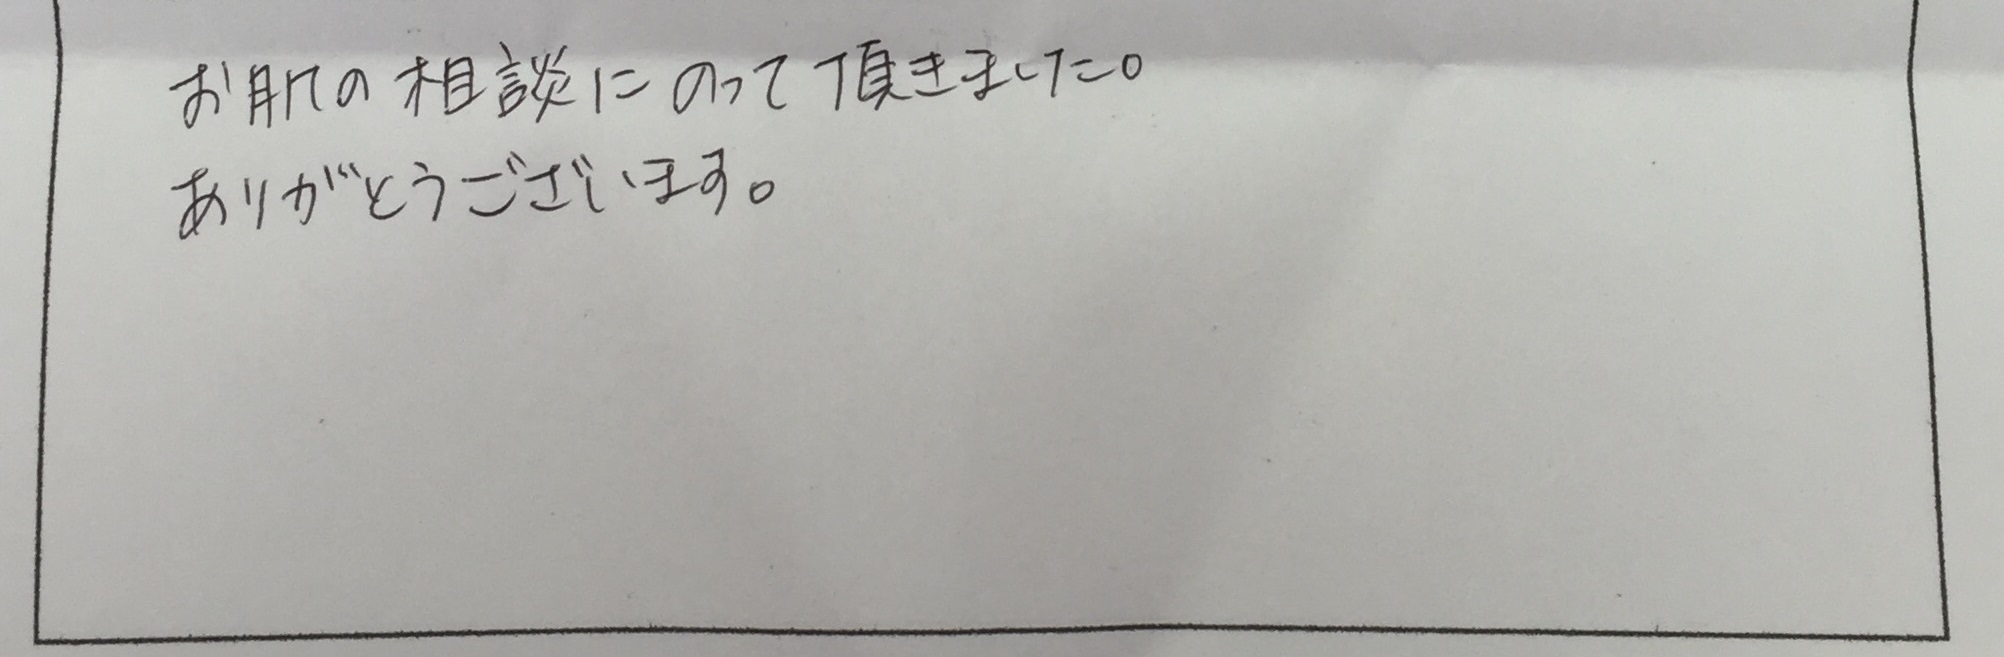 お肌の相談にのって頂きました。
ありがとうございます。